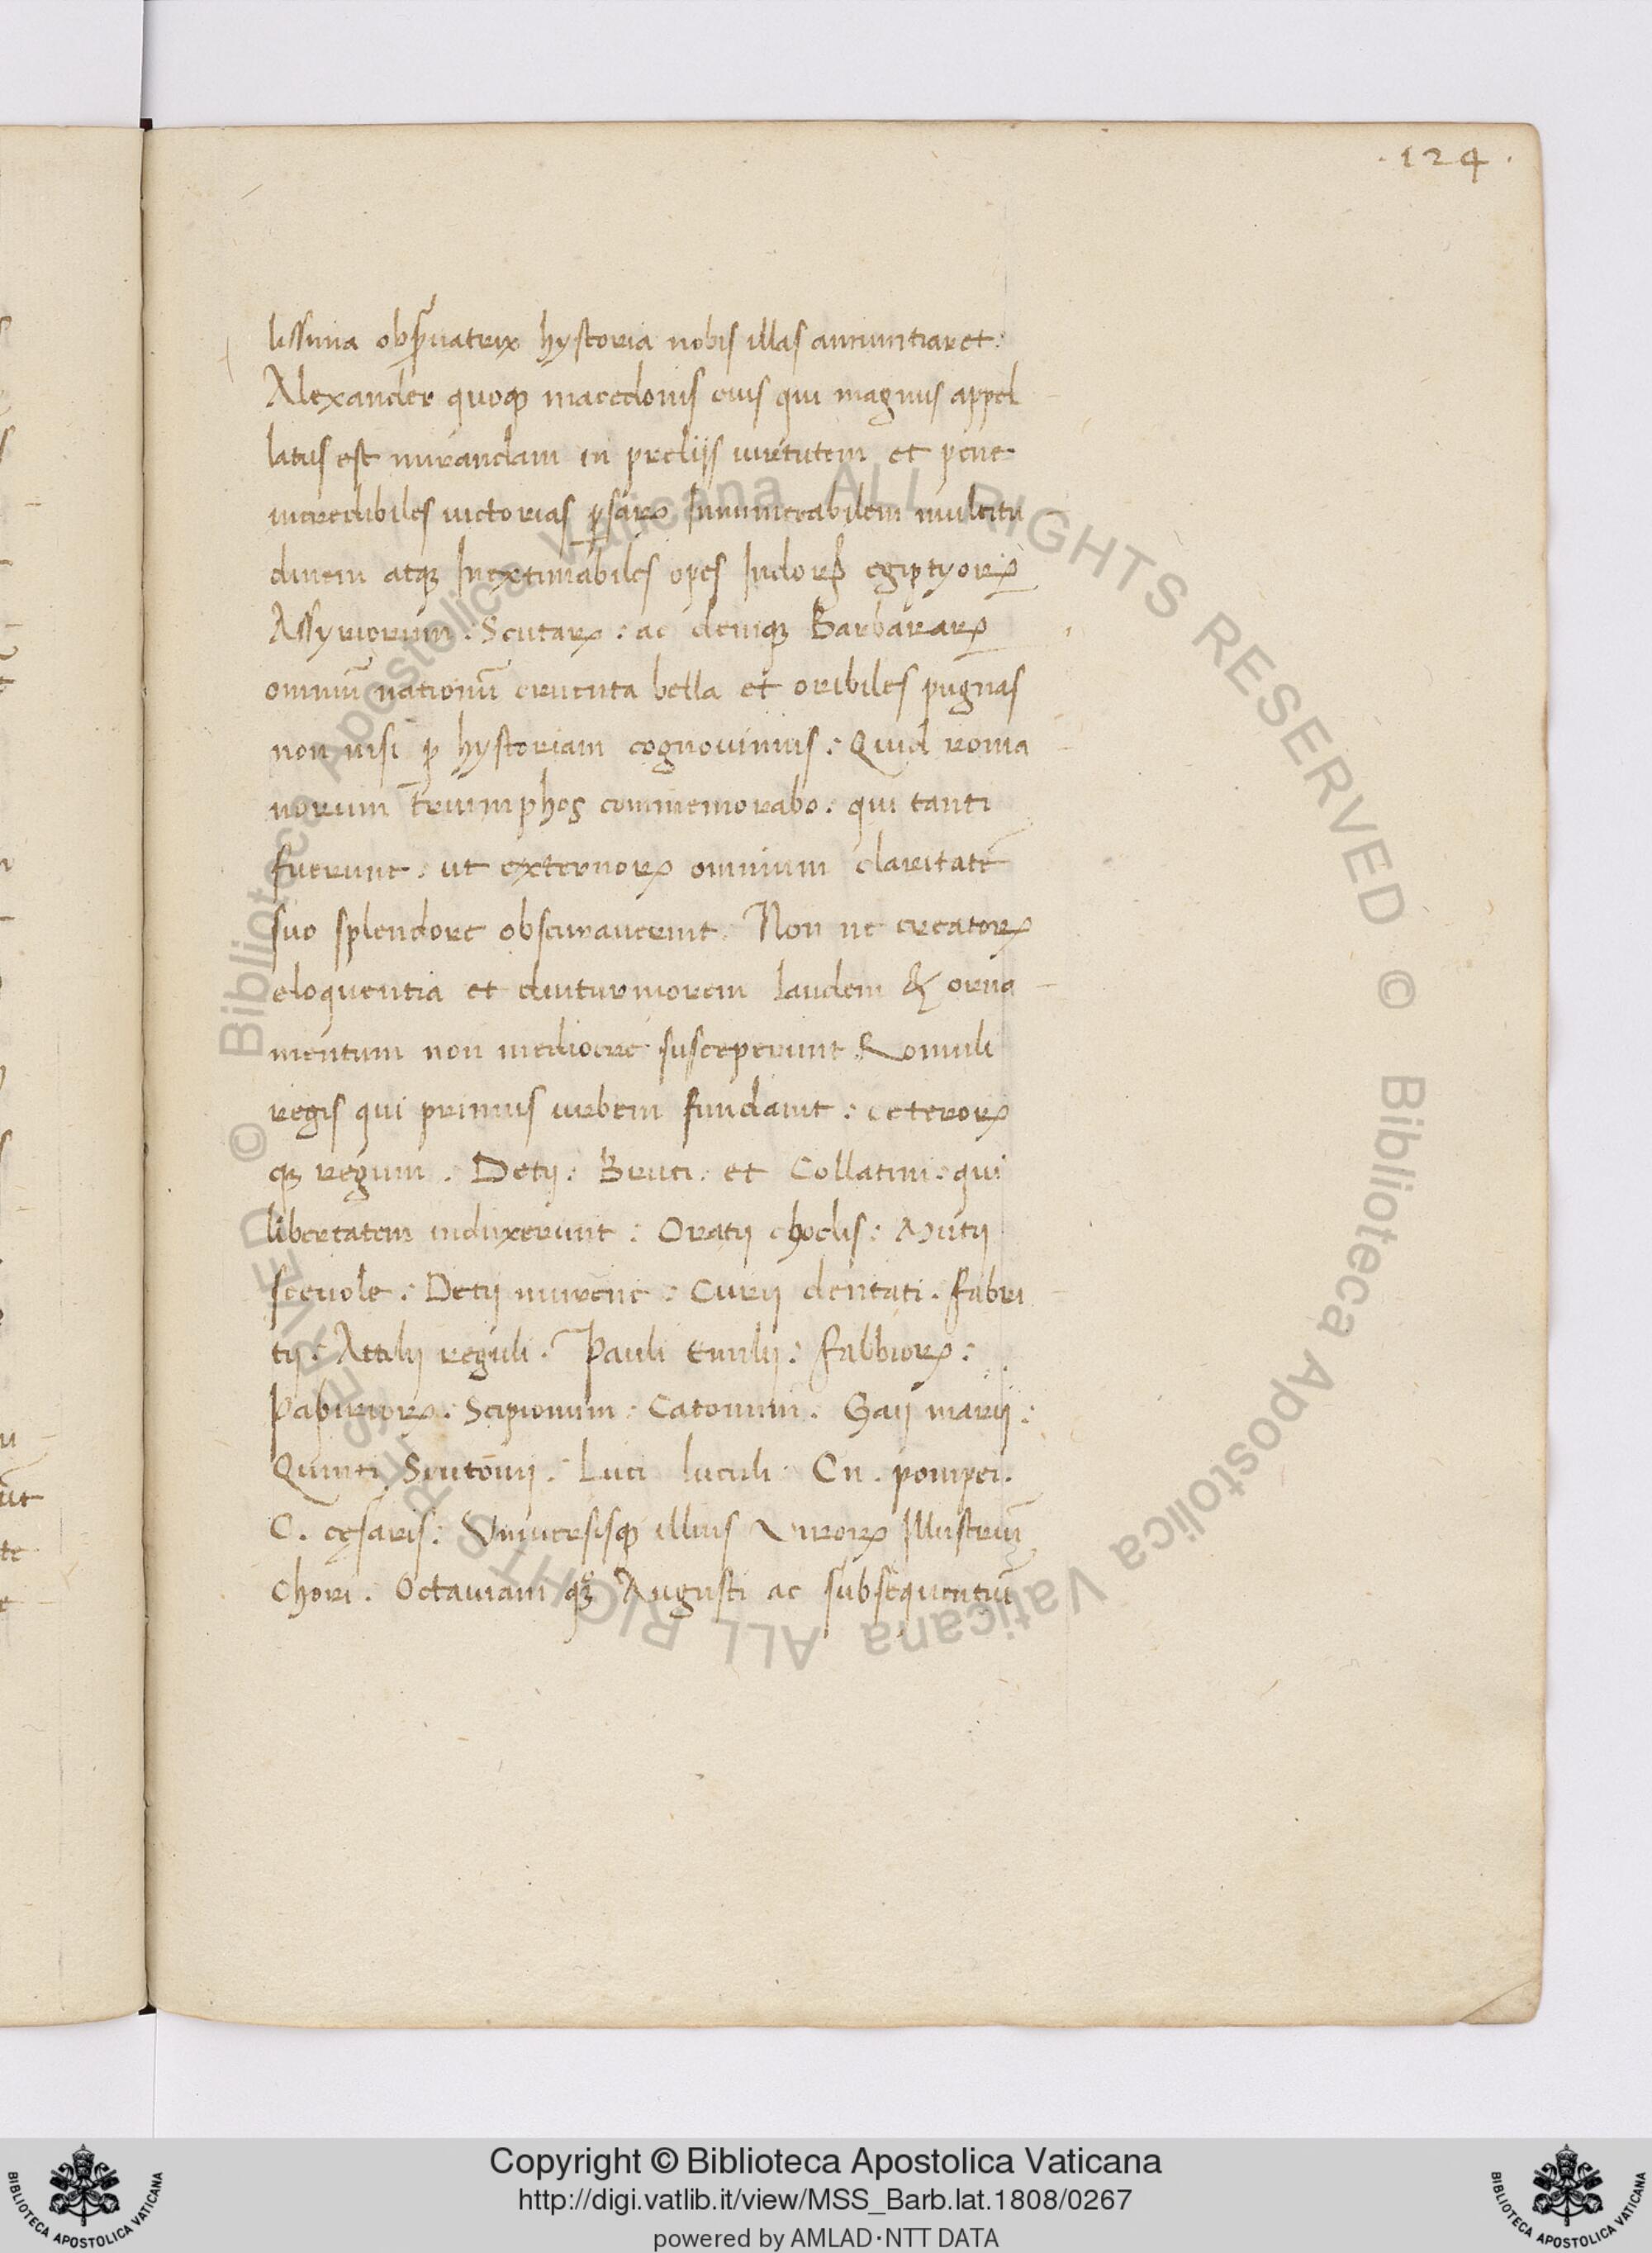 .124.
lissima obs̄uatrix hystoria nobis illas annuntiaret:
Alexander quoqꝫ macedonis cuis qui magnus appel
latus est mirandam in preliis uirtutem et pene
incredibiles uictorias ꝑsarꝝ Innumerabilem multitu
dinem atqꝫ Inextimabiles opes Indorꝝ egiptyorꝝ
Assyriorum: Scutarꝝ: ac deniqꝫ Barbararꝝ
omniū nationū cruenta bella et oribiles pugnas
non nisi ꝑ hystoriam cognouimus: Quid roma
norum triumphos commemorabo. qui tanti
fuerunt. ut externorꝝ omnium claritatē
suo splendore obscurauerint. Non ne creatorꝝ
eloquentia et diuturniorem laudem & orna
mentum non mediocre susceperunt Romuli
regis qui primus urbem fundauit: ceterorꝝ
qꝫ regum. Detij: Bruti: et Collatini: qui
libertatem induxerunt: Oratij choclis: Mutij
sceuole: Detij murene: Curij dentati. fabri
tij: Attilij reguli. Pauli Emilij: fabbiorꝝ:
Pabiriorꝝ: Scipionum: Catonum. Gaij marij:
Quinti Scutōnij: Luci luculi: Cn. pompei.
C. cęsaris: Vniuersisqꝫ illius Virorꝝ Illustriū
chori. Octauiani qꝫ Augusti ac subsequentiū
© Biblioteca Apostolica Vaticana ALL RIGHTS RESERVED © Biblioteca Apostolica Vaticana ALL RIGHTS RESERVED
Copyright © Biblioteca Apostolica Vaticana
http://digi.vatlib.it/view/MSS_Barb.lat.1808/0267
powered by AMLAD·NTT DATA
BIBLIOTECA APOSTOLICA VATICANA
BIBLIOTECA APOSTOLICA VATICANA